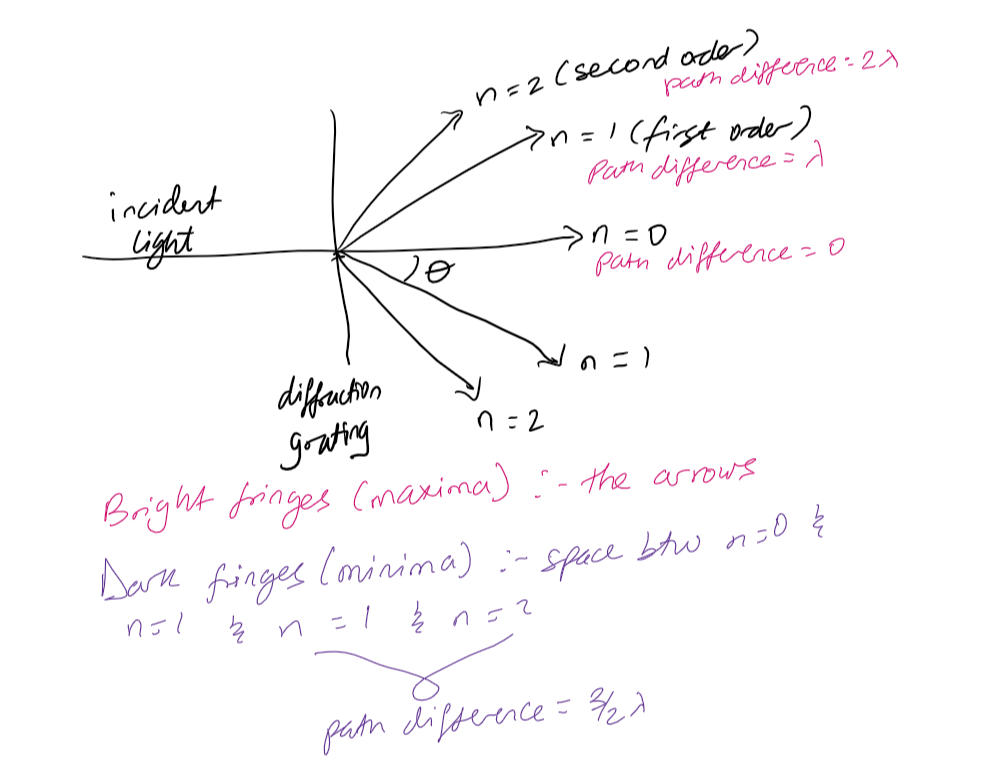 n = 2 (second order)
path difference = 2λ
n = 1 (first order)
Path difference = λ
incident
light
n = 0
path difference = 0
θ
n = 1
diffraction
grating
n = 2
Bright fringes (maxima) :- the arrows
Dark fringes (minima) :- space btw n=0 &
n=1 & n = 1 & n = 2
path difference = 3/2 λ